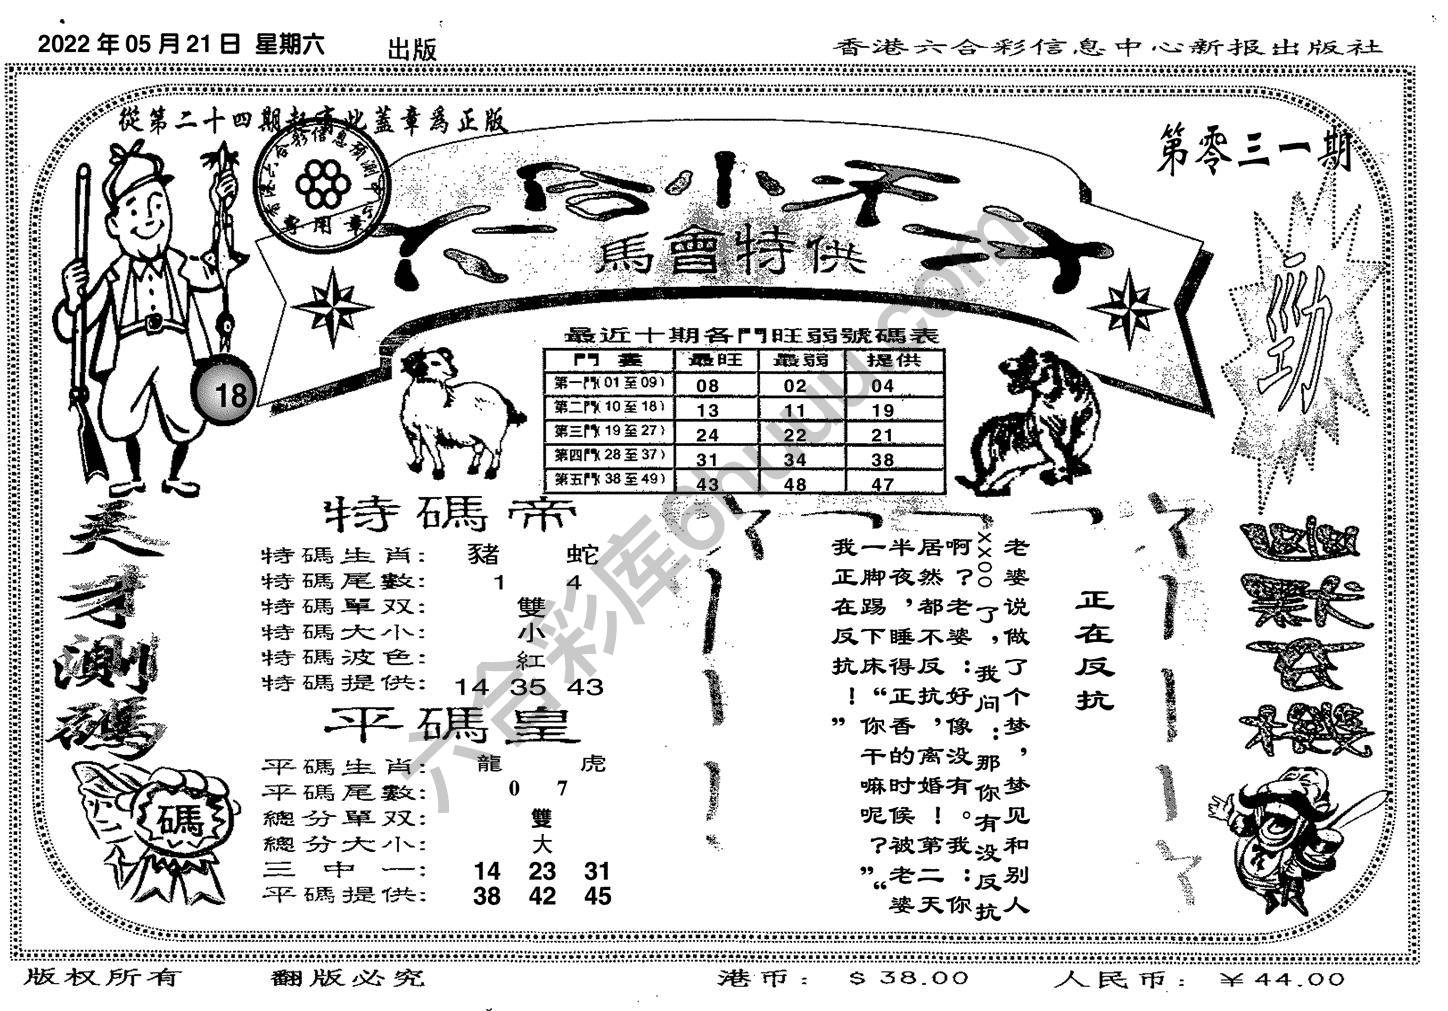 2022 年 05 月 21 日 星期六 出版
香港六合彩信息中心新报出版社
從第二十四期起有此蓋章爲正版
香港六合彩信息預測中心
專用章
第零三一期
馬會特供
勁
18
最近十期各門旺弱號碼表
門 最旺 最弱 提供
第一門(01至09) 08 02 04
第二門(10至18) 13 11 19
第三門(19至27) 24 22 21
第四門(28至37) 31 34 38
第五門(38至49) 43 48 47
天才測碼
碼
特碼帝
特碼生肖: 豬 蛇
特碼尾數: 1 4
特碼單双: 雙
特碼大小: 小
特碼波色: 紅
特碼提供: 14 35 43
平碼皇
平碼生肖: 龍 虎
平碼尾數: 0 7
總分單双: 雙
總分大小: 大
三中一: 14 23 31
平碼提供: 38 42 45
正在反抗
老婆说做了个梦，梦见和别人
xxoo了，我问：那你有没反抗
啊？老婆：好像没有。我：你
居然都不反抗，离婚！第二天
半夜，睡得正香的时候，被老婆
一脚踢下床“你干嘛呢？”“
我正在反抗！”
六合彩库6huuu.com
版权所有 翻版必究 港币：$ 38.00 人民币：¥ 44.00